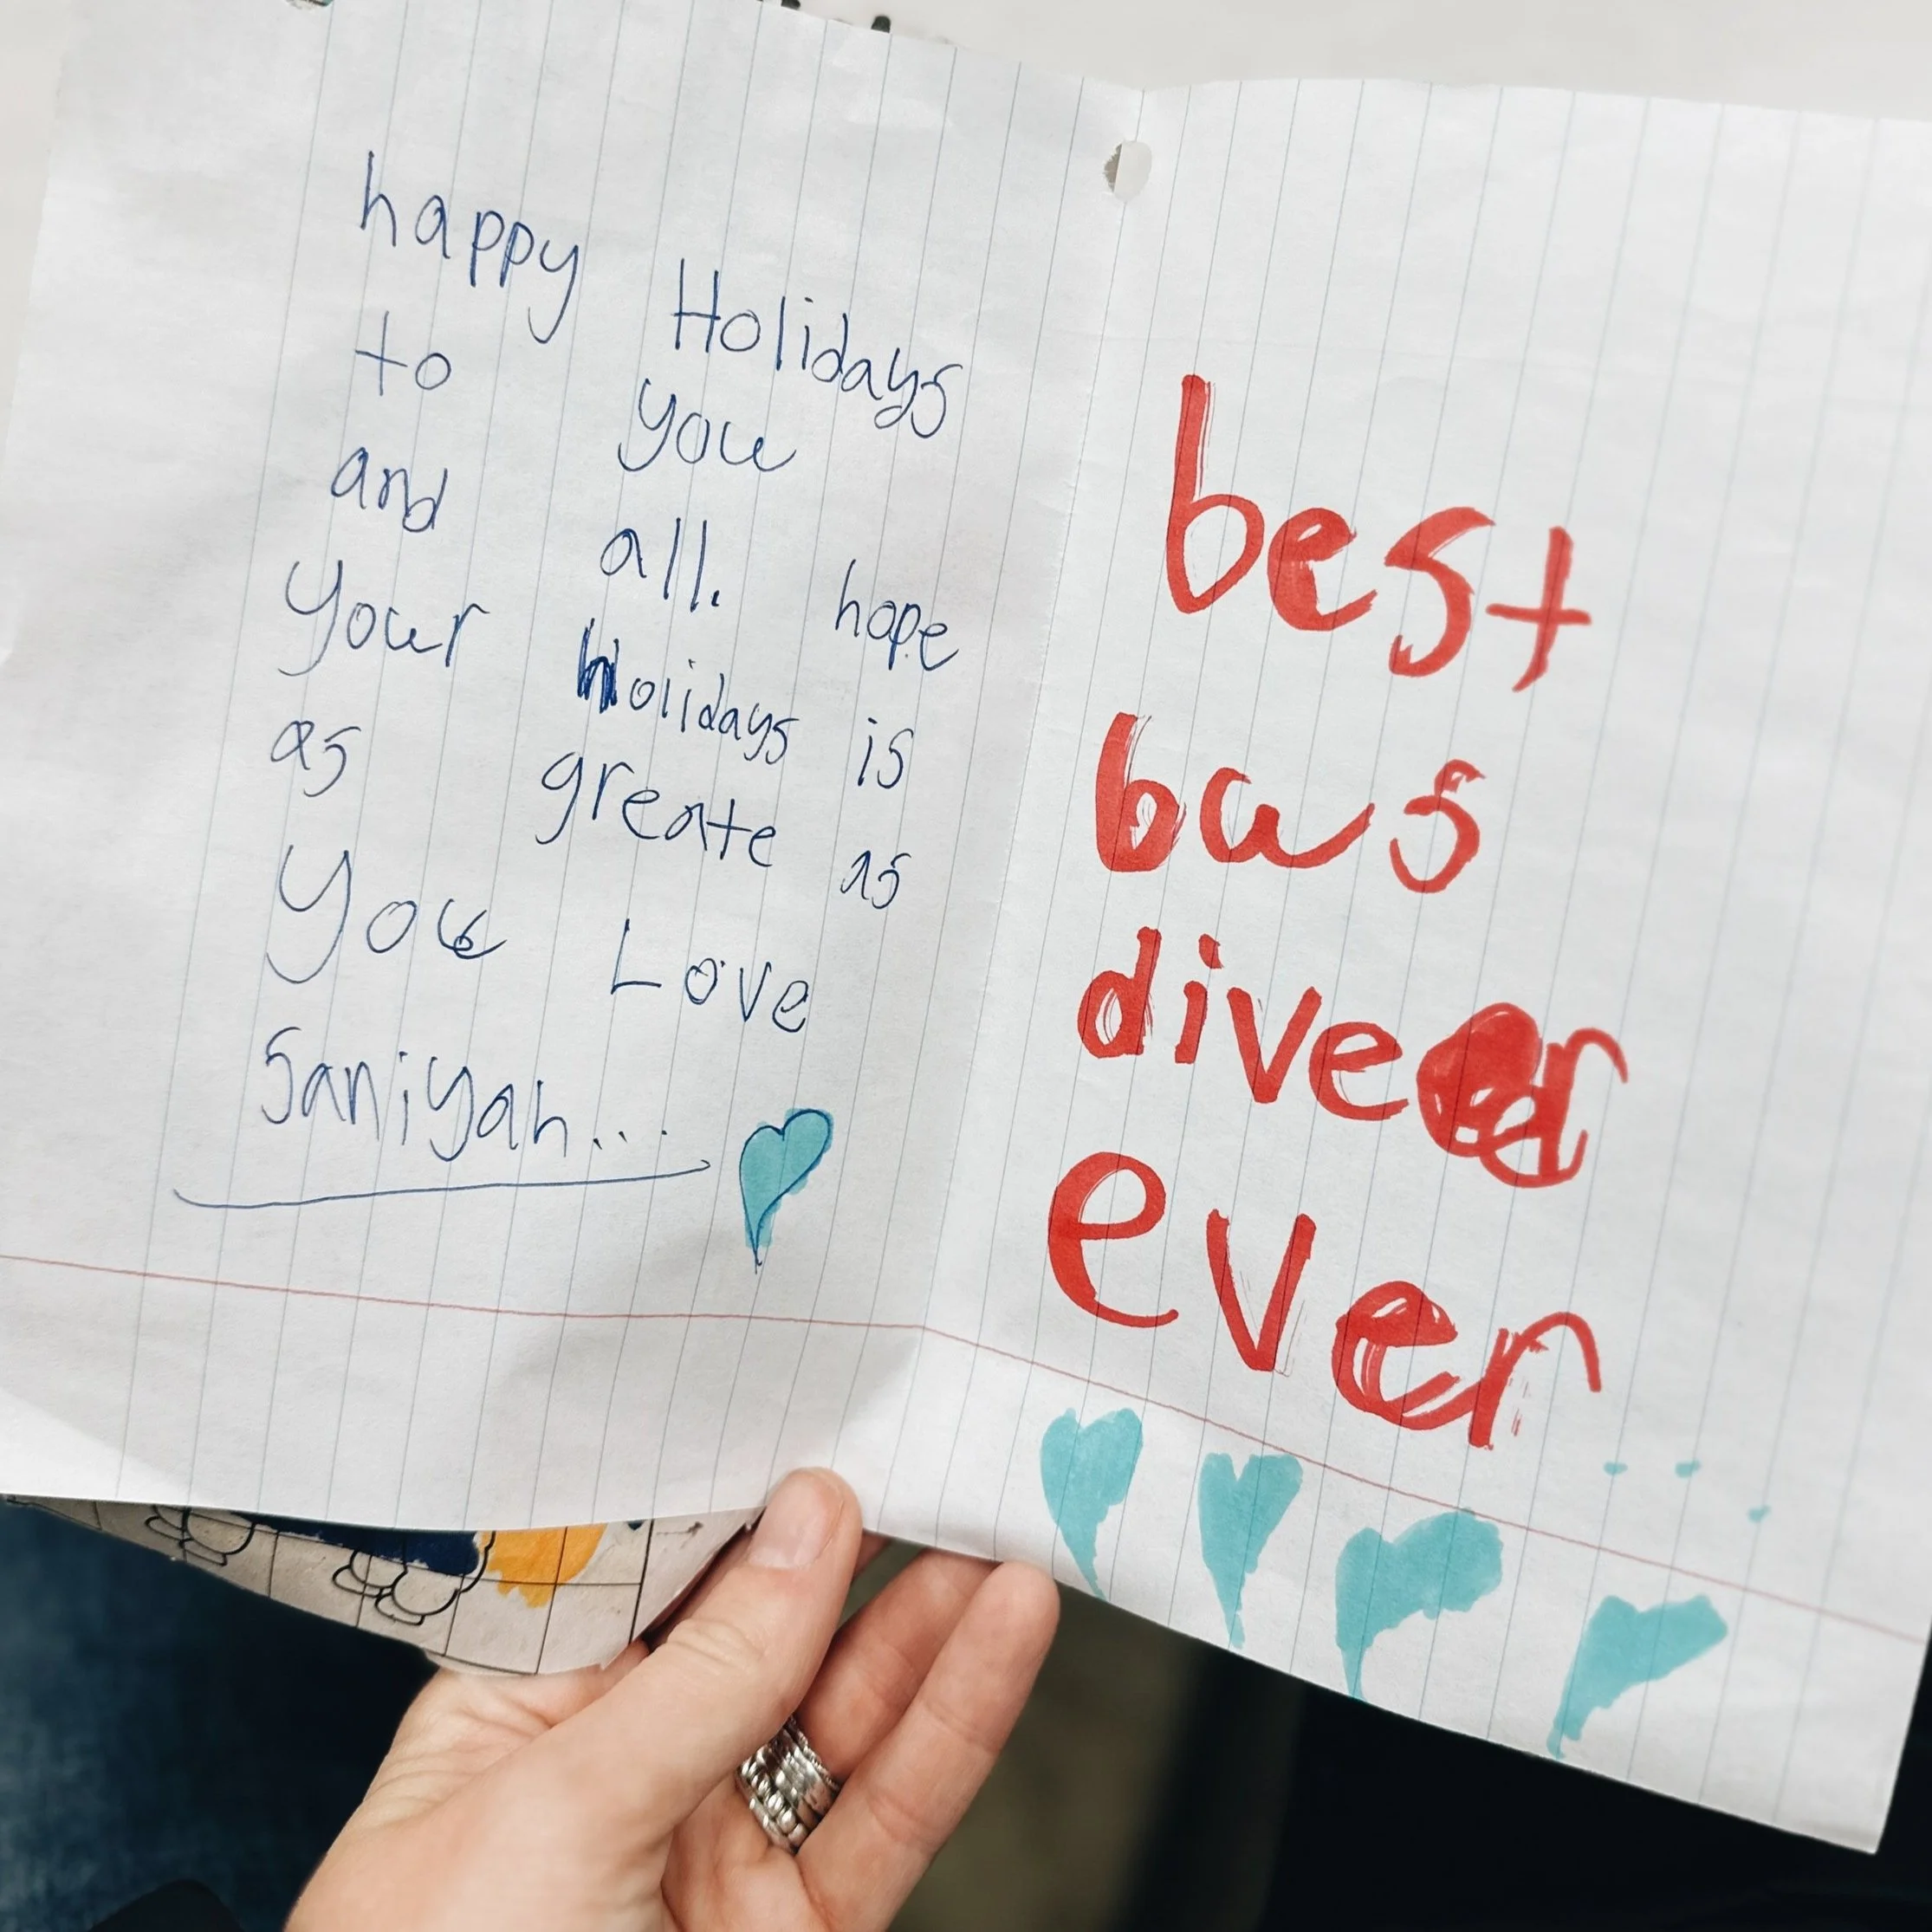 happy Holidays
to you
and all. hope
your holidays is
as greate as
you Love
Saniyah...
best
bus
diver
ever...